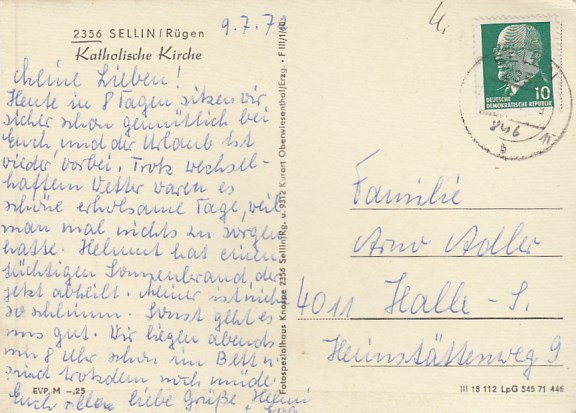 2356 SELLIN/Rügen
Katholische Kirche
9.7.7
Meine Lieben!
Heute in 8 Tagen sitzen wir
sicher schon gemütlich bei
Euch und der Urlaub ist
wieder vorbei. Trotz wechsel-
haftem Wetter waren es
schöne erholsame Tage, weil
man mal nichts zu sorgen
hatte. Helmut hat einen
tüchtigen Sonnenbrand, der
jetzt abheilt. Meiner ist nicht
so schlimm. Sonst geht es
uns gut. Wir liegen abends
um 8 Uhr schon im Bett u.
sind trotzdem noch müde.
Euch allen liebe Grüße Helmut
EVP M -.25
Fotospezialhaus Knospe 2356 Sellin/Rg. u. 9312 Kurort Oberwiesenthal/Erzg. • F III/1/10
10
DEUTSCHE
DEMOKRATISCHE REPUBLIK
SELLIN
Familie
Arno Adler
4011 Halle-S.
Heimstättenweg 9
III 18 112 LpG 545 71 446